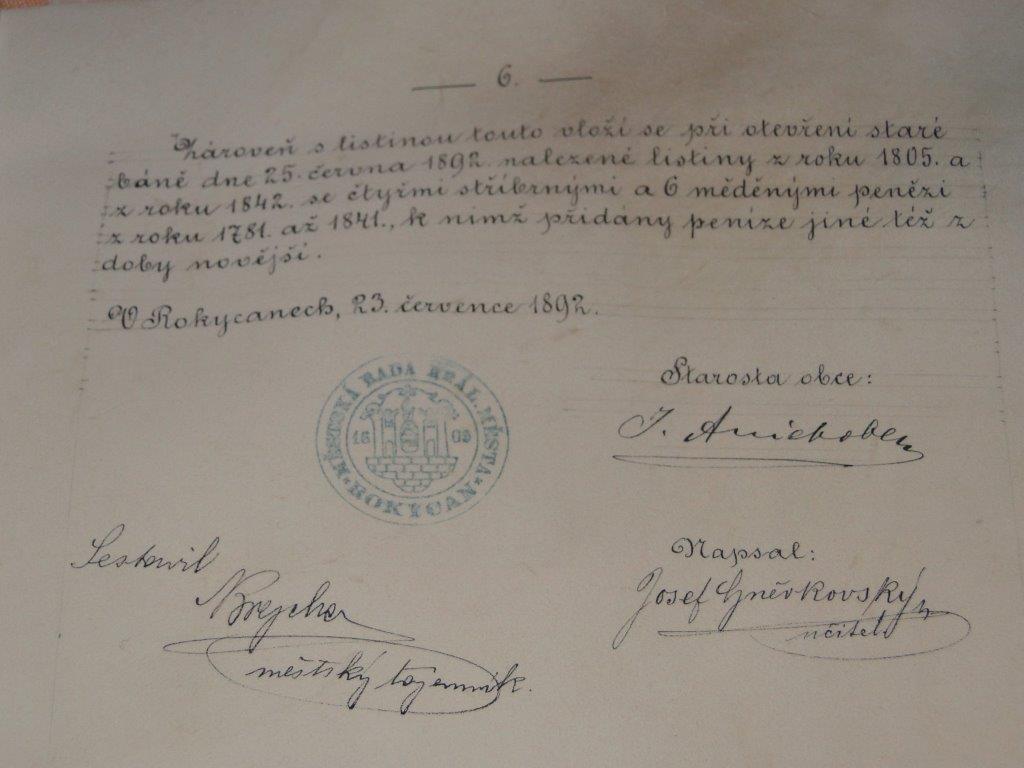 6.
Zároveň s listinou touto vloží se při otevření staré
báně dne 25. června 1892 nalezené listiny z roku 1805. a
z roku 1842. se čtyřmi stříbrnými a 6 měděnými penězi
z roku 1781. až 1841., k nimž přidány peníze jiné též z
doby novější.
V Rokycanech, 23. července 1892.
MĚSTSKÁ RADA KRÁL. MĚSTA ROKYCAN
Starosta obce:
Sestavil
Brejcha
městský tajemník.
Napsal:
Josef Hněvkovský
učitel